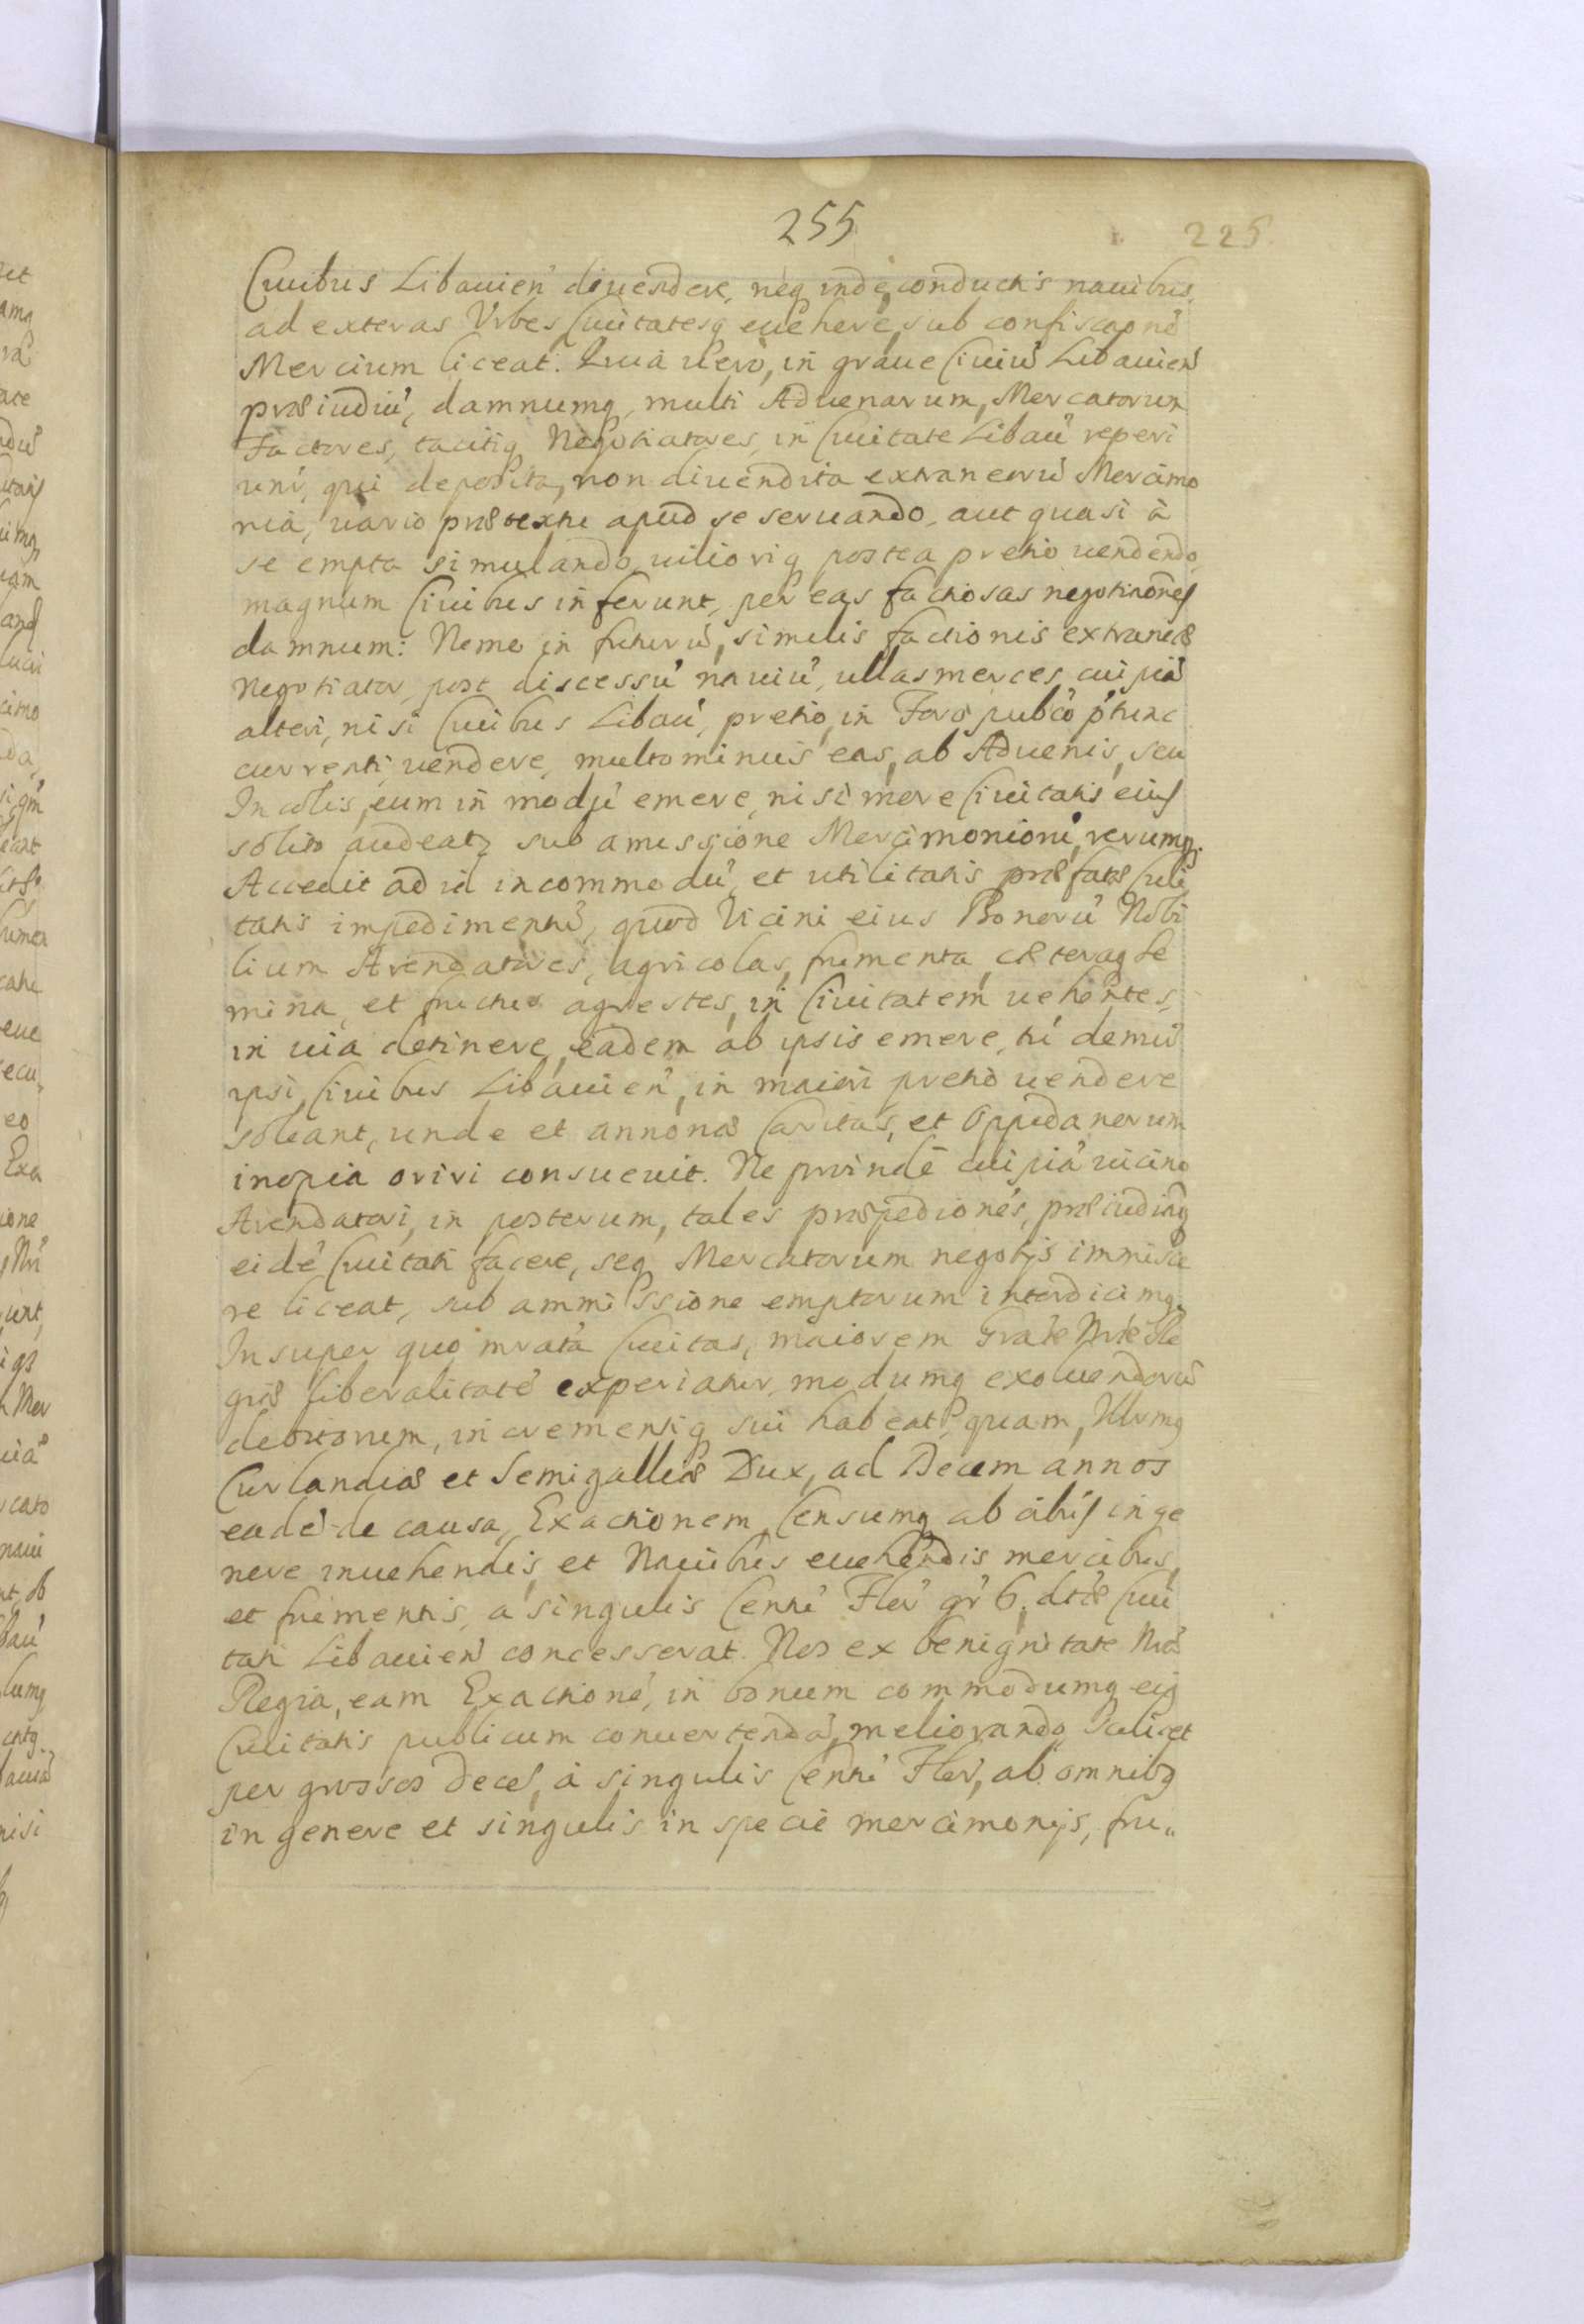 255
225
Ciuibus Libauien̄ diuendere, neq inde conductis nauibus,
ad exteras Vrbes Ciuitatesq euehere, sub confiscaōnē
Mercium liceat. Quia uerò, in graue Ciuiū Libauien̄
præiudiū, damnumq, multi Aduenarum, Mercatorum
Factores, tacitiq Negotiatores, in Ciuitate Libaū reperi
unt̄, qui deposita, non diuendita extraneorū Mercimo
nia, uario prætextu apud se seruando, aut quasi à
se empta simulando, uiliori q postea pretio uendendo,
magnum Ciuibus inferunt, per eas factiosas negotiaōnes
damnum: Nemo in futurū, similis factionis extraneæ
Negotiator, post discessū nauiū, ullas merces cuipiā
alteri, nisi Ciuibus Libaū, pretio, in Foro pubco ptunc
currenti, uendere, multo minus eas, ab Aduenis, seu
Incolis, eum in modū emere, nisi mere Ciuitatis eius
solito audeat, sub amissione Mercimoniorū, rerumq.
Accedit ad id incommodū, et utilitatis præfatæ Ciui
tatis impedimentū, quod Vicini eius Bonorū Nobi
lium Arendatores, agricolas, frumenta, cæteraq se
mina, et fructus agrestes, in Ciuitatem uehentes,
in uia detinere, eadem ab ipsis emere, tū demū
ipsi, Ciuibus Libauien̄, in maiori pretio uendere
soleant, unde et annonæ Caritas, et Oppidanorum
inopia oriri consueuit. Ne proinde cuipiā uicino
Arendatori, in posterum, tales præpedionēs, præiudiaq
eidē Ciuitati facere, seq Mercatorum negotijs immisce
re liceat, sub ammissione emptorum interdicimq.
Insuper quo mrata Ciuitas, maiorem Gratæ Nræ Re
giæ liberalitatē experiatur, modumq exoluendorū
debitorum, incrementiq sui habeat, quam, Illrmq
Curlandiæ et Semigalliæ Dux, ad Decem annos
eadē de causa, Exactionem, Censumq ab oibus in ge
nere inuehendis, et Nauibus euehendis mercibus,
et frumentis, a singulis Centū Flor̄ gr̄ 6. dtæ Ciui
tati Libauien̄ concesserat. Nos ex benignitate Nrā
Regia, eam Exactionē, in bonum commodumq eiq
Ciuitatis publicum conuertendā, meliorando, Scilicet
per grossos decē, à singulis Centū Flor̄, ab omnibq
in genere et singulis in specie mercimonijs, fru„